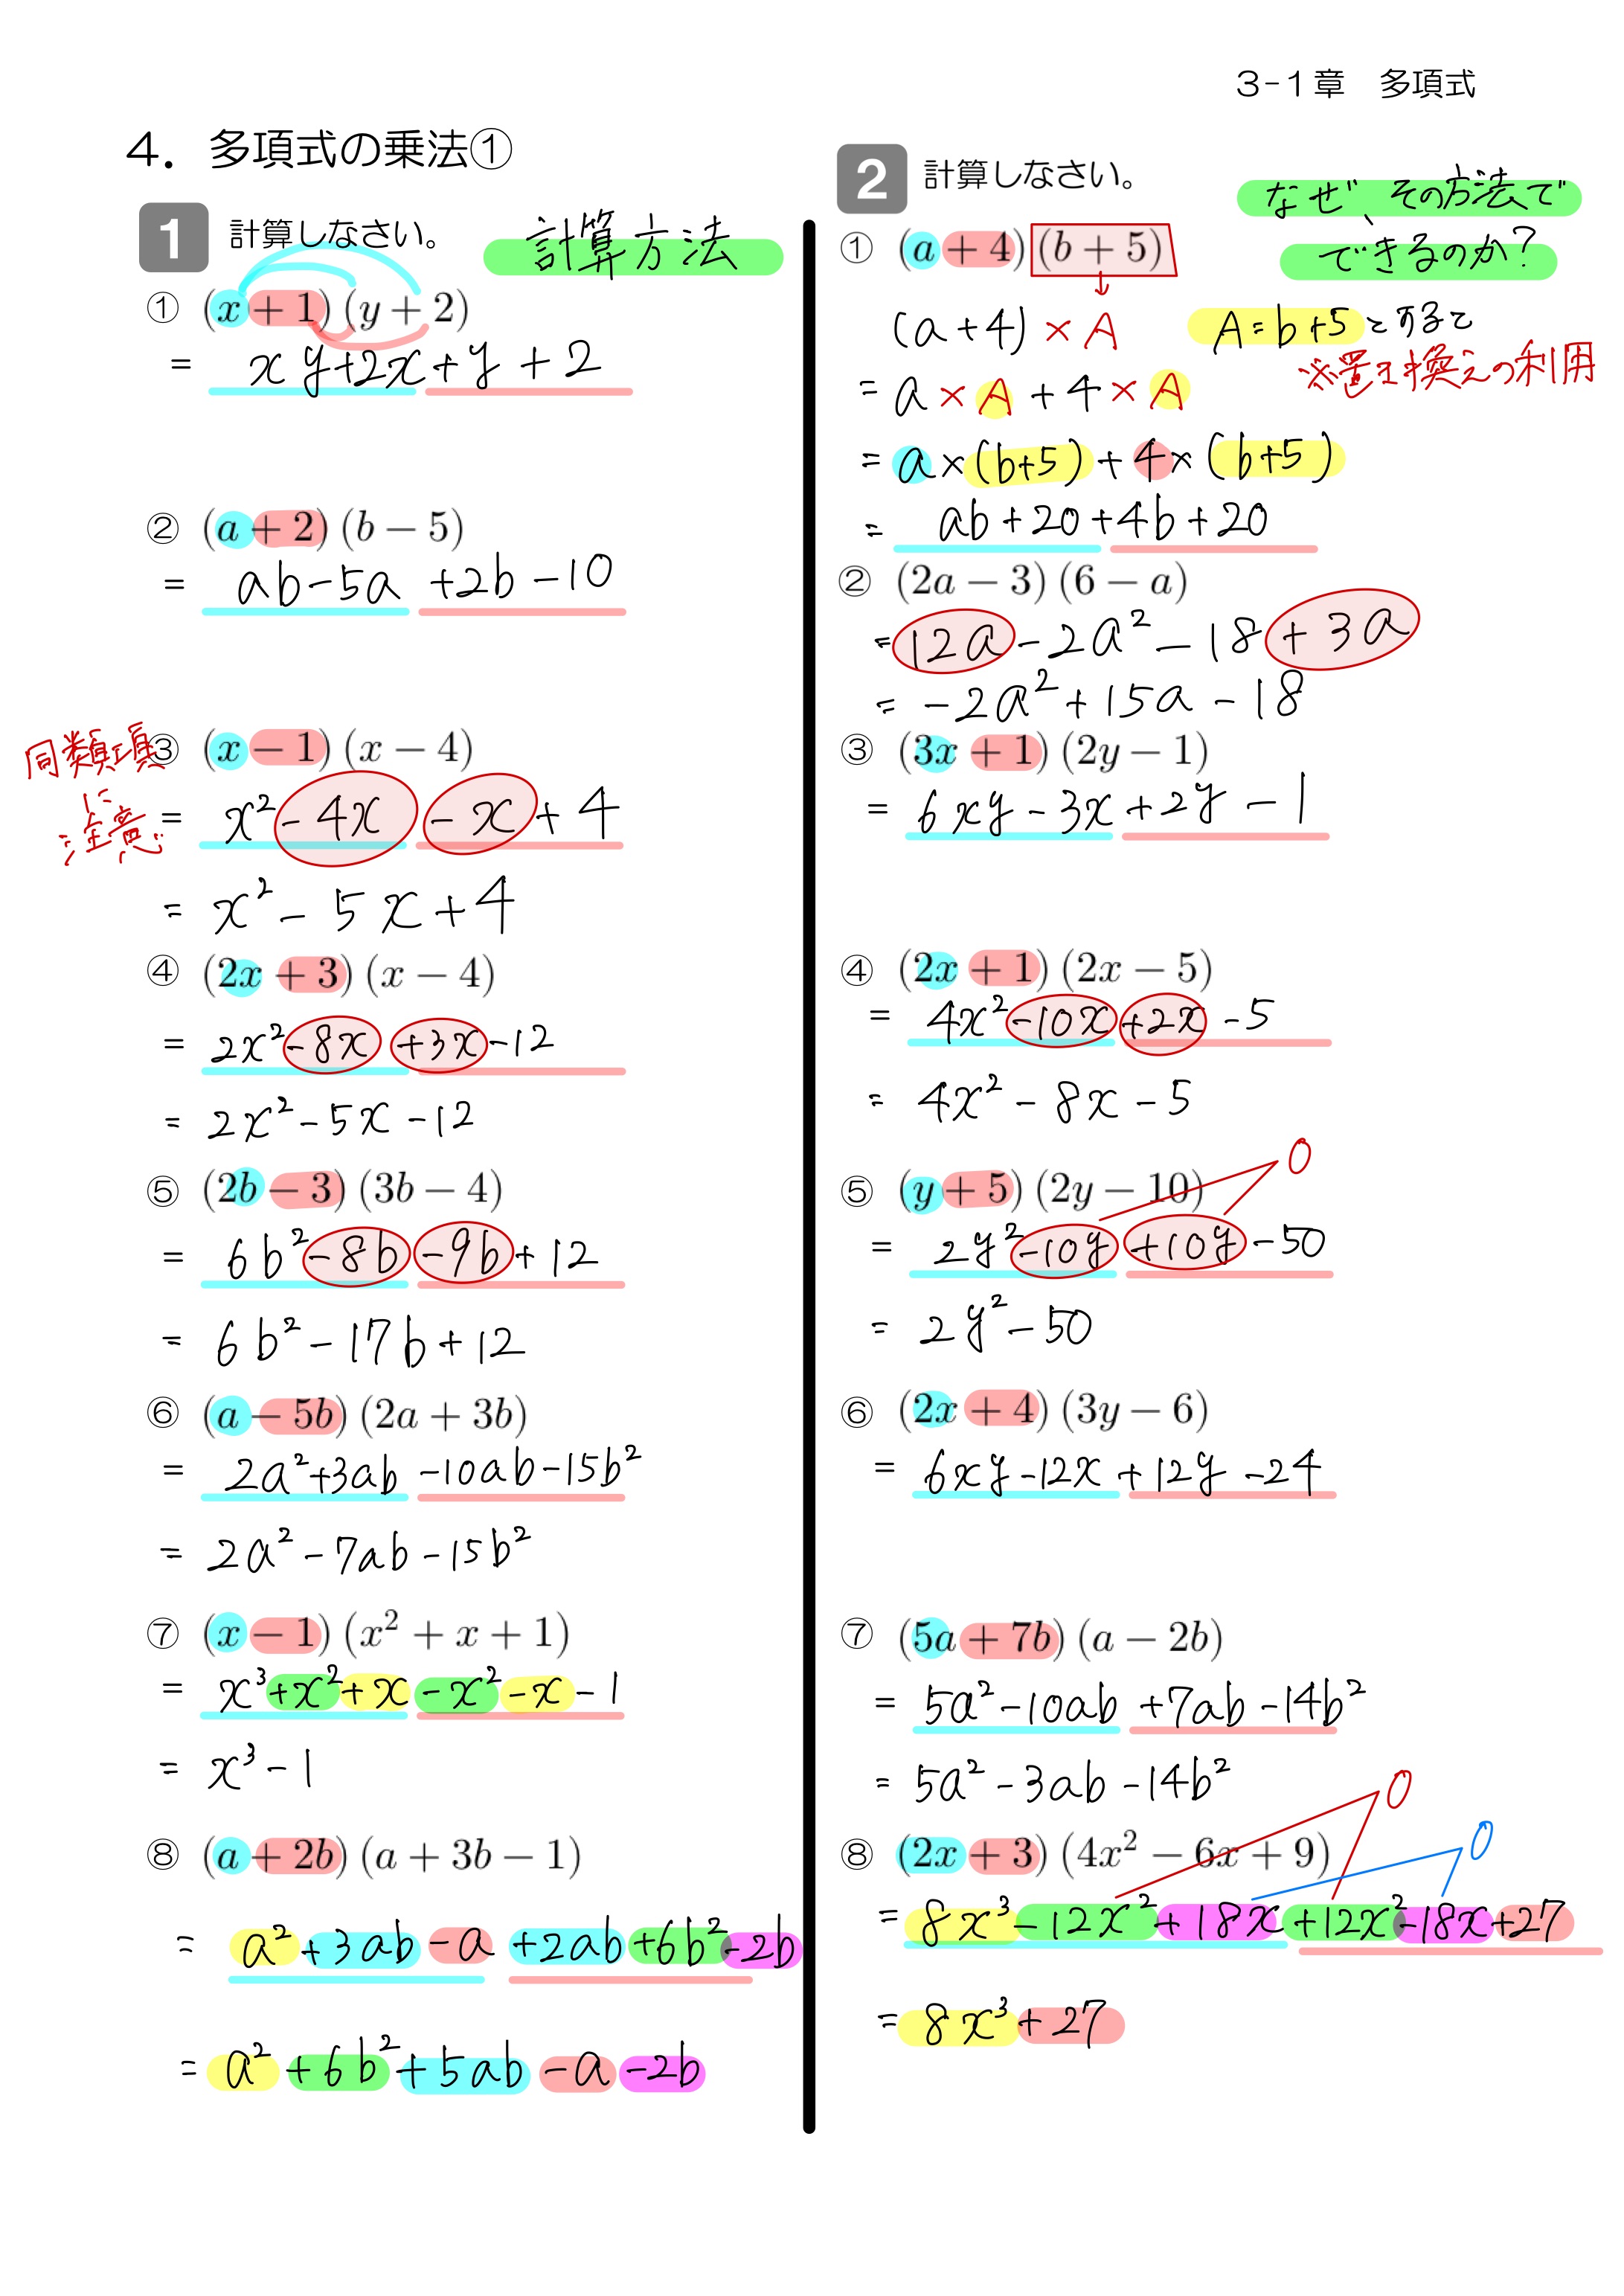 3-1章　多項式
4．多項式の乗法①
1 計算しなさい。 計算方法
① (x + 1) (y + 2)
= xy+2x+y+2
② (a + 2) (b − 5)
= ab-5a +2b-10
同類項に注意
③ (x − 1) (x − 4)
= x²-4x -x+4
= x²-5x+4
④ (2x + 3) (x − 4)
= 2x²-8x +3x-12
= 2x²-5x-12
⑤ (2b − 3) (3b − 4)
= 6b²-8b -9b+12
= 6b²-17b+12
⑥ (a − 5b) (2a + 3b)
= 2a²+3ab -10ab-15b²
= 2a²-7ab-15b²
⑦ (x − 1) (x² + x + 1)
= x³+x²+x -x²-x-1
= x³-1
⑧ (a + 2b) (a + 3b − 1)
= a²+3ab-a +2ab+6b²-2b
= a²+6b²+5ab-a-2b
2 計算しなさい。
なぜ、その方法で
できるのか?
① (a + 4) (b + 5)
(a+4)×A A=b+5とすると
※置き換えの利用
= a×A+4×A
= a×(b+5)+4×(b+5)
= ab+20+4b+20
② (2a − 3) (6 − a)
= 12a-2a²-18+3a
= -2a²+15a-18
③ (3x + 1) (2y − 1)
= 6xy-3x+2y-1
④ (2x + 1) (2x − 5)
= 4x²-10x+2x-5
= 4x²-8x-5
0
⑤ (y + 5) (2y − 10)
= 2y²-10y +10y-50
= 2y²-50
⑥ (2x + 4) (3y − 6)
= 6xy-12x+12y-24
⑦ (5a + 7b) (a − 2b)
= 5a²-10ab +7ab-14b²
= 5a²-3ab-14b²
0
0
⑧ (2x + 3) (4x² − 6x + 9)
= 8x³-12x²+18x+12x²-18x+27
= 8x³+27